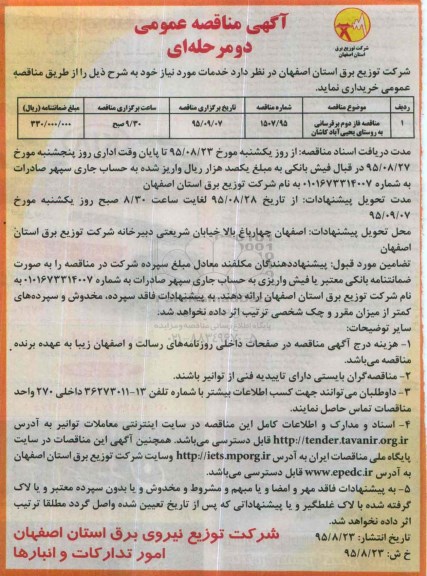 آگهی مناقصه عمومی
دو مرحله‌ای
شرکت توزیع برق
استان اصفهان
شرکت توزیع برق استان اصفهان در نظر دارد خدمات مورد نیاز خود به شرح ذیل را از طریق مناقصه
عمومی خریداری نماید.
ردیف موضوع مناقصه شماره مناقصه تاریخ برگزاری مناقصه ساعت برگزاری مناقصه مبلغ ضمانتنامه (ریال)
۱ مناقصه فاز دوم برقرسانی به روستای یحیی‌آباد کاشان ۱۵۰۷/۹۵ ۹۵/۰۹/۰۷ ۹/۳۰ صبح ۳۳۰/۰۰۰/۰۰۰
مدت دریافت اسناد مناقصه: از روز یکشنبه مورخ ۹۵/۰۸/۲۳ تا پایان وقت اداری روز پنجشنبه مورخ
۹۵/۰۸/۲۷ در قبال فیش بانکی به مبلغ یکصد هزار ریال واریز شده به حساب جاری سپهر صادرات
به شماره ۰۱۰۱۶۷۳۳۱۴۰۰۷ به نام شرکت توزیع برق استان اصفهان
مدت تحویل پیشنهادات: از تاریخ ۹۵/۰۸/۲۸ لغایت ساعت ۸/۳۰ صبح روز یکشنبه مورخ
۹۵/۰۹/۰۷
محل تحویل پیشنهادات: اصفهان چهارباغ بالا خیابان شریعتی دبیرخانه شرکت توزیع برق استان
اصفهان
تضامین مورد قبول: پیشنهاددهندگان مکلفند معادل مبلغ سپرده شرکت در مناقصه را به صورت
ضمانتنامه بانکی معتبر یا فیش واریزی به حساب جاری سپهر صادرات به شماره ۰۱۰۱۶۷۳۳۱۴۰۰۷ به
نام شرکت توزیع برق استان اصفهان ارائه دهند. به پیشنهادات فاقد سپرده، مخدوش و سپرده‌های
کمتر از میزان مقرر و چک شخصی ترتیب اثر داده نخواهد شد.
سایر توضیحات:
۱- هزینه درج آگهی مناقصه در صفحات داخلی روزنامه‌های رسالت و اصفهان زیبا به عهده برنده
مناقصه می‌باشد.
۲- مناقصه‌گران بایستی دارای تاییدیه فنی از توانیر باشند.
۳- داوطلبان می‌توانند جهت کسب اطلاعات بیشتر با شماره تلفن ۱۳-۳۶۲۷۳۰۱۱ داخلی ۲۷۰ واحد
مناقصات تماس حاصل نمایند.
۴- اسناد و مدارک و اطلاعات کامل این مناقصه در سایت اینترنتی معاملات توانیر به آدرس
http://tender.tavanir.org.ir قابل دسترسی می‌باشد. همچنین آگهی این مناقصات در سایت
پایگاه ملی مناقصات ایران به آدرس http://iets.mporg.ir وسایت شرکت توزیع برق استان اصفهان
به آدرس www.epedc.ir قابل دسترسی می‌باشد.
۵- به پیشنهادات فاقد مهر و امضا و یا مبهم و مشروط و مخدوش و یا بدون سپرده معتبر و یا لاک
گرفته شده با لاک غلطگیر و یا پیشنهاداتی که پس از تاریخ تعیین شده واصل گردد مطلقا ترتیب
اثر داده نخواهد شد.
تاریخ انتشار: ۹۵/۸/۲۳
خ ش: ۹۵/۸/۲۳
شرکت توزیع نیروی برق استان اصفهان
امور تدارکات و انبارها